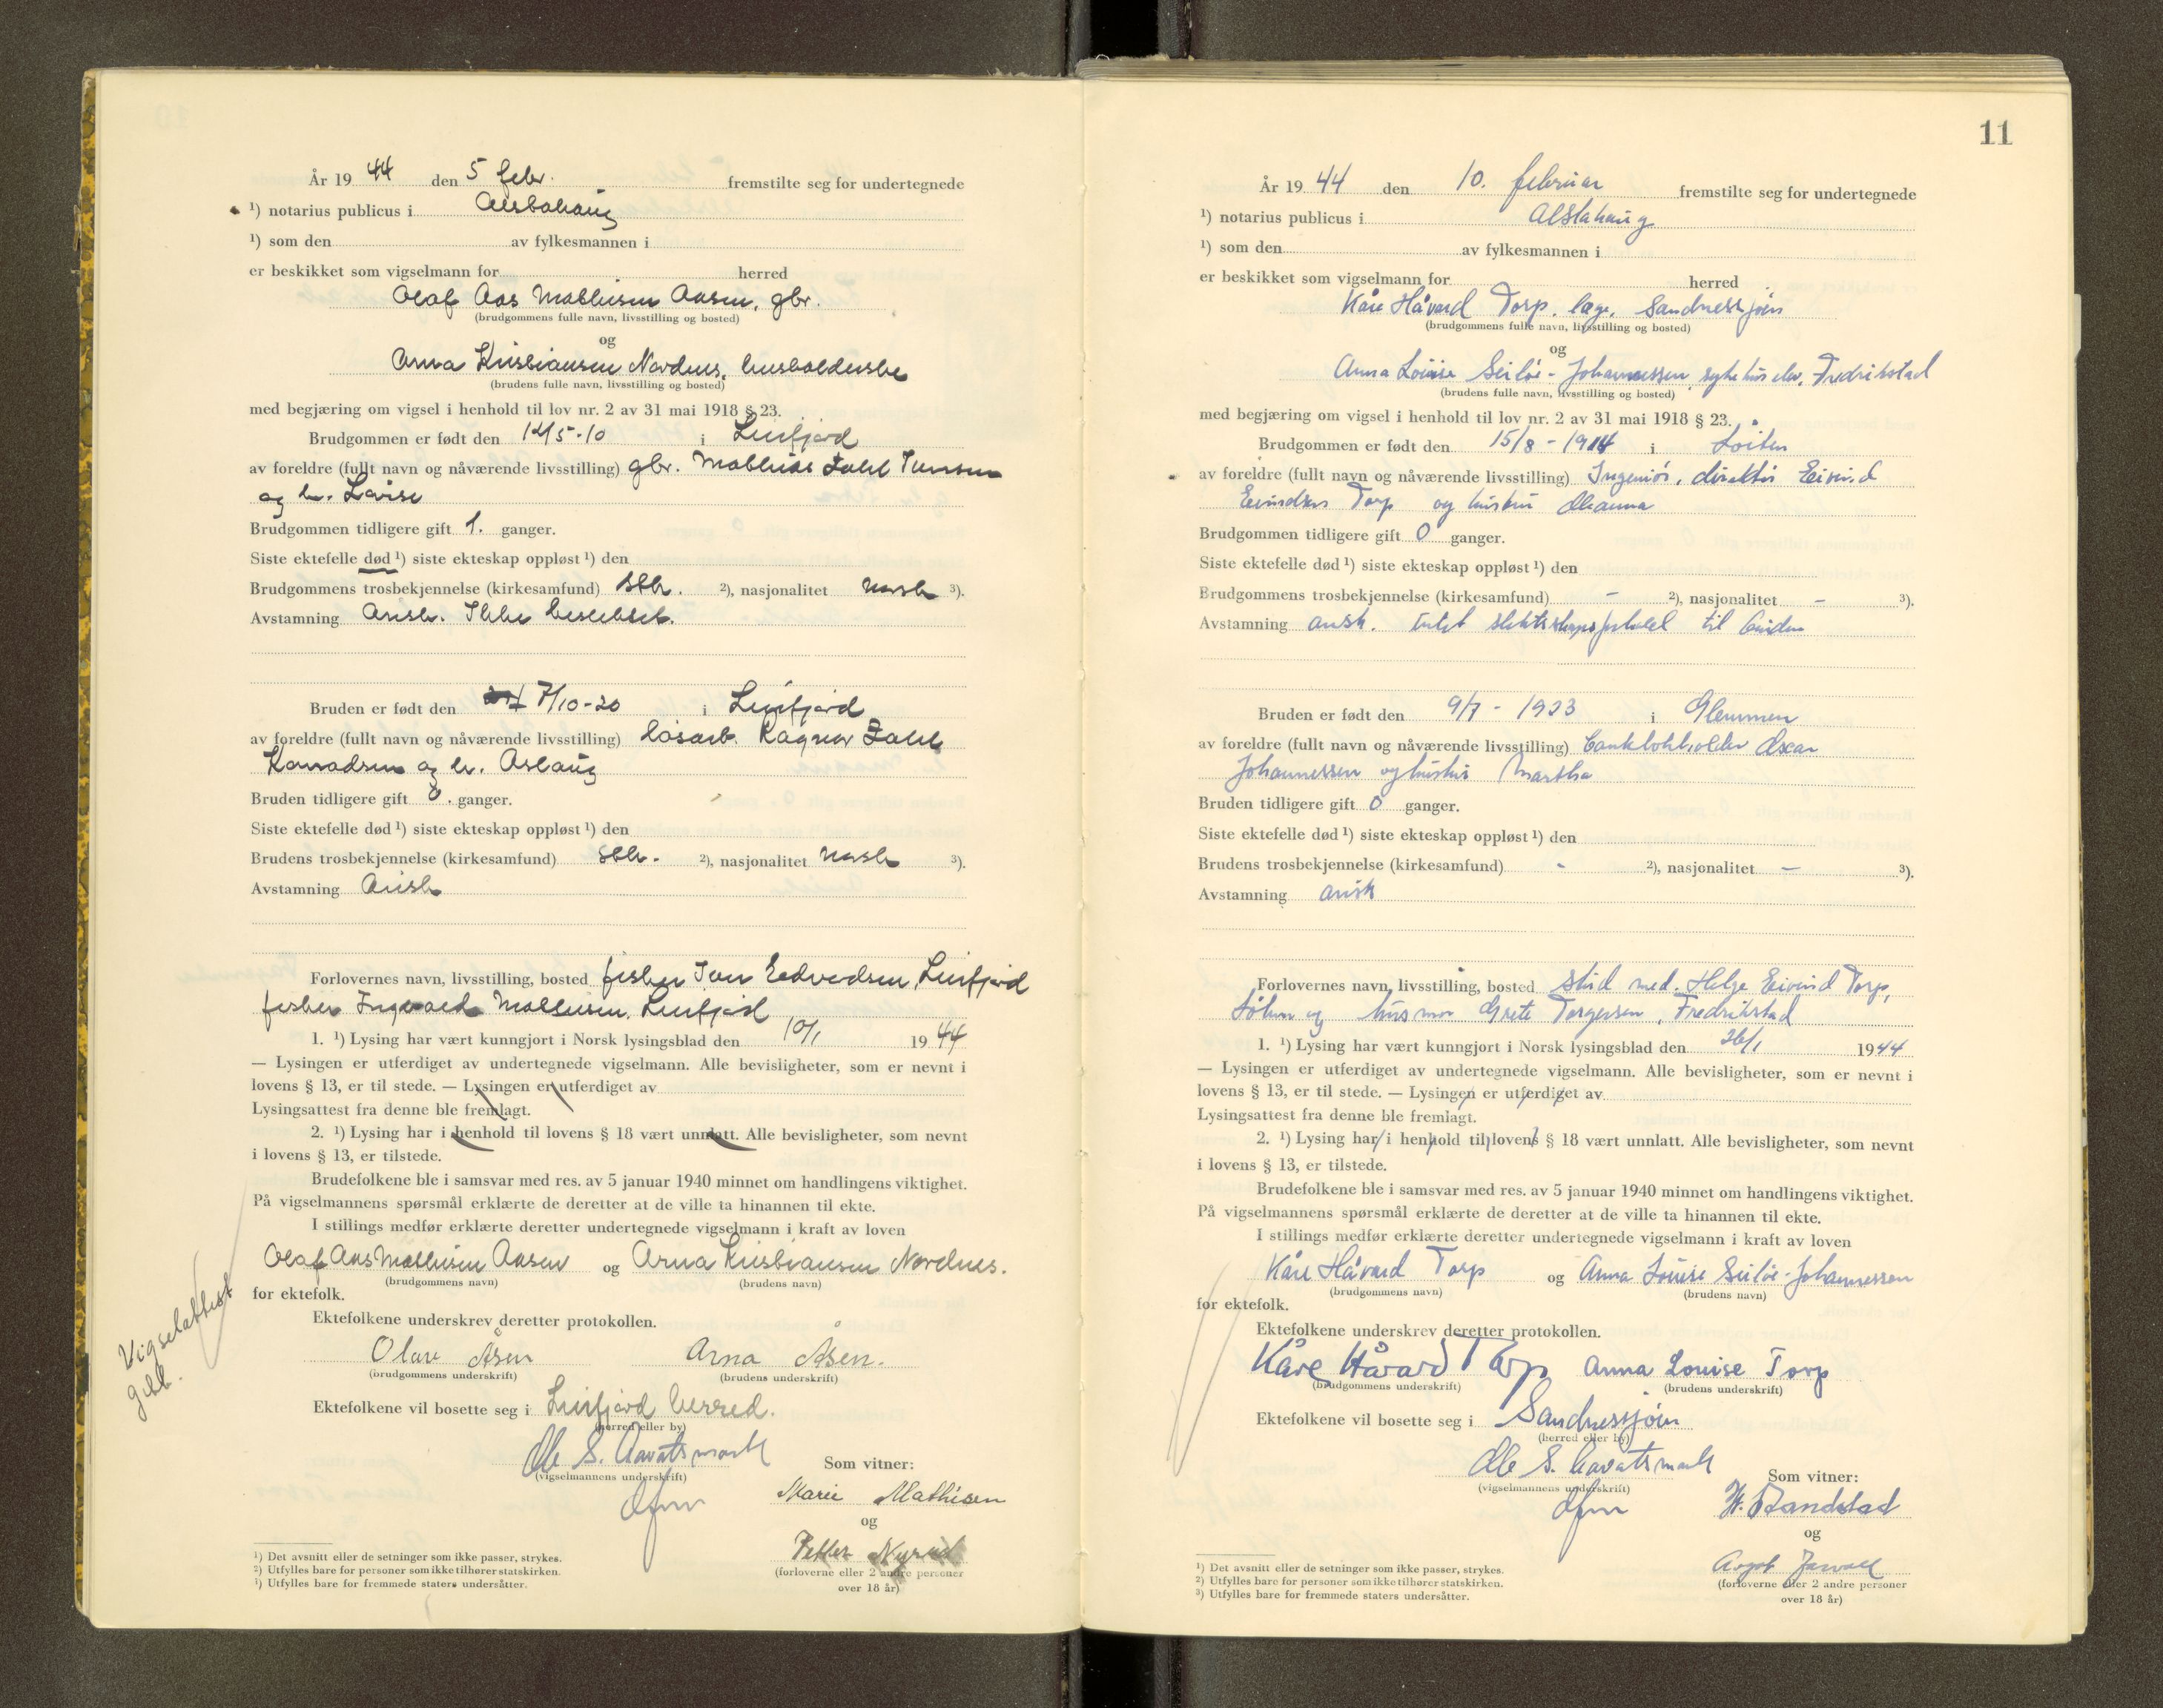 År 19 44 den 5 febr. fremstilte seg for undertegnede
¹) notarius publicus i Alstahaug
¹) som den av fylkesmannen i
er beskikket som vigselmann for herred
Olaf Aas Mathisen Aasen, gbr.
(brudgommens fulle navn, livsstilling og bosted)
og
Arna Kristiansen Nordnes, husholderske
(brudens fulle navn, livsstilling og bosted)
med begjæring om vigsel i henhold til lov nr. 2 av 31 mai 1918 § 23.
Brudgommen er født den i Leirfjord
av foreldre (fullt navn og nåværende livsstilling) gbr. Mathias Zahl Jensen
og h. Lovise
Brudgommen tidligere gift 1. ganger.
Siste ektefelle død ¹) siste ekteskap oppløst ¹) den
Brudgommens trosbekjennelse (kirkesamfund) stk. ²), nasjonalitet norsk ³).
Avstamning Arisk. Ikke beslektet.
Bruden er født den 7/10-20 i Leirfjord
av foreldre (fullt navn og nåværende livsstilling) løsarb. Ragnar Zahl
Konradsen og h. Aslaug
Bruden tidligere gift 0. ganger.
Siste ektefelle død ¹) siste ekteskap oppløst ¹) den
Brudens trosbekjennelse (kirkesamfund) stk. ²), nasjonalitet norsk ³).
Avstamning Arisk
Forlovernes navn, livsstilling, bosted fisker Edvardsen, Leirfjord
fisker Ingvald Mathisen, Leirfjord
1. ¹) Lysing har vært kunngjort i Norsk lysingsblad den 10/1 19 44
— Lysingen er utferdiget av undertegnede vigselmann. Alle bevisligheter, som er nevnt i
lovens § 13, er til stede. — Lysingen er utferdiget av
Lysingsattest fra denne ble fremlagt.
2. ¹) Lysing har i henhold til lovens § 18 vært unnlatt. Alle bevisligheter, som nevnt
i lovens § 13, er tilstede.
Brudefolkene ble i samsvar med res. av 5 januar 1940 minnet om handlingens viktighet.
På vigselmannens spørsmål erklærte de deretter at de ville ta hinannen til ekte.
I stillings medfør erklærte deretter undertegnede vigselmann i kraft av loven
Olaf Aas Mathisen Aasen og Arna Kristiansen Nordnes.
(brudgommens navn) (brudens navn)
for ektefolk.
Ektefolkene underskrev deretter protokollen.
Olav Åsen Arna Åsen.
(brudgommens underskrift) (brudens underskrift)
Ektefolkene vil bosette seg i Leirfjord herred.
(herred eller by)
Ole S. Aavatsmark
(vigselmannens underskrift)
Som vitner:
Marie Mathisen
og
Petter
(forloverne eller 2 andre personer
over 18 år)
Vigselattest
¹) Det avsnitt eller de setninger som ikke passer, strykes.
²) Utfylles bare for personer som ikke tilhører statskirken.
³) Utfylles bare for fremmede staters undersåtter.
11
År 19 44 den 10. februar fremstilte seg for undertegnede
¹) notarius publicus i Alstahaug
¹) som den av fylkesmannen i
er beskikket som vigselmann for herred
Kåre Håvard Torp, læge, Sandnessjøen
(brudgommens fulle navn, livsstilling og bosted)
og
Anna Louise Seiløe-Johannessen, Fredrikstad
(brudens fulle navn, livsstilling og bosted)
med begjæring om vigsel i henhold til lov nr. 2 av 31 mai 1918 § 23.
Brudgommen er født den 15/8 - 1914 i Løiten
av foreldre (fullt navn og nåværende livsstilling) Ingeniør, direktør Eivind
Eivindsen Torp og hustru
Brudgommen tidligere gift 0 ganger.
Siste ektefelle død ¹) siste ekteskap oppløst ¹) den
Brudgommens trosbekjennelse (kirkesamfund) - ²), nasjonalitet - ³).
Avstamning arisk. Intet slektskapsforhold til bruden
Bruden er født den 9/7 - 1923 i Glemmen
av foreldre (fullt navn og nåværende livsstilling) bankbokholder Oscar
Johannessen og hustru Martha
Bruden tidligere gift 0 ganger.
Siste ektefelle død ¹) siste ekteskap oppløst ¹) den
Brudens trosbekjennelse (kirkesamfund) - ²), nasjonalitet - ³).
Avstamning arisk
Forlovernes navn, livsstilling, bosted stud med. Helge Eivind Torp,
og husmor Grete Torgersen, Fredrikstad
1. ¹) Lysing har vært kunngjort i Norsk lysingsblad den 26/1 1944
— Lysingen er utferdiget av undertegnede vigselmann. Alle bevisligheter, som er nevnt i
lovens § 13, er til stede. — Lysingen er utferdiget av
Lysingsattest fra denne ble fremlagt.
2. ¹) Lysing har i henhold til lovens § 18 vært unnlatt. Alle bevisligheter, som nevnt
i lovens § 13, er tilstede.
Brudefolkene ble i samsvar med res. av 5 januar 1940 minnet om handlingens viktighet.
På vigselmannens spørsmål erklærte de deretter at de ville ta hinannen til ekte.
I stillings medfør erklærte deretter undertegnede vigselmann i kraft av loven
Kåre Håvard Torp og Anna Louise Seiløe-Johannessen
(brudgommens navn) (brudens navn)
for ektefolk.
Ektefolkene underskrev deretter protokollen.
Kåre Håvard Torp Anna Louise Torp
(brudgommens underskrift) (brudens underskrift)
Ektefolkene vil bosette seg i Sandnessjøen
(herred eller by)
Ole S. Aavatsmark
(vigselmannens underskrift)
Som vitner:
H. Sandstad
og
(forloverne eller 2 andre personer
over 18 år)
¹) Det avsnitt eller de setninger som ikke passer, strykes.
²) Utfylles bare for personer som ikke tilhører statskirken.
³) Utfylles bare for fremmede staters undersåtter.